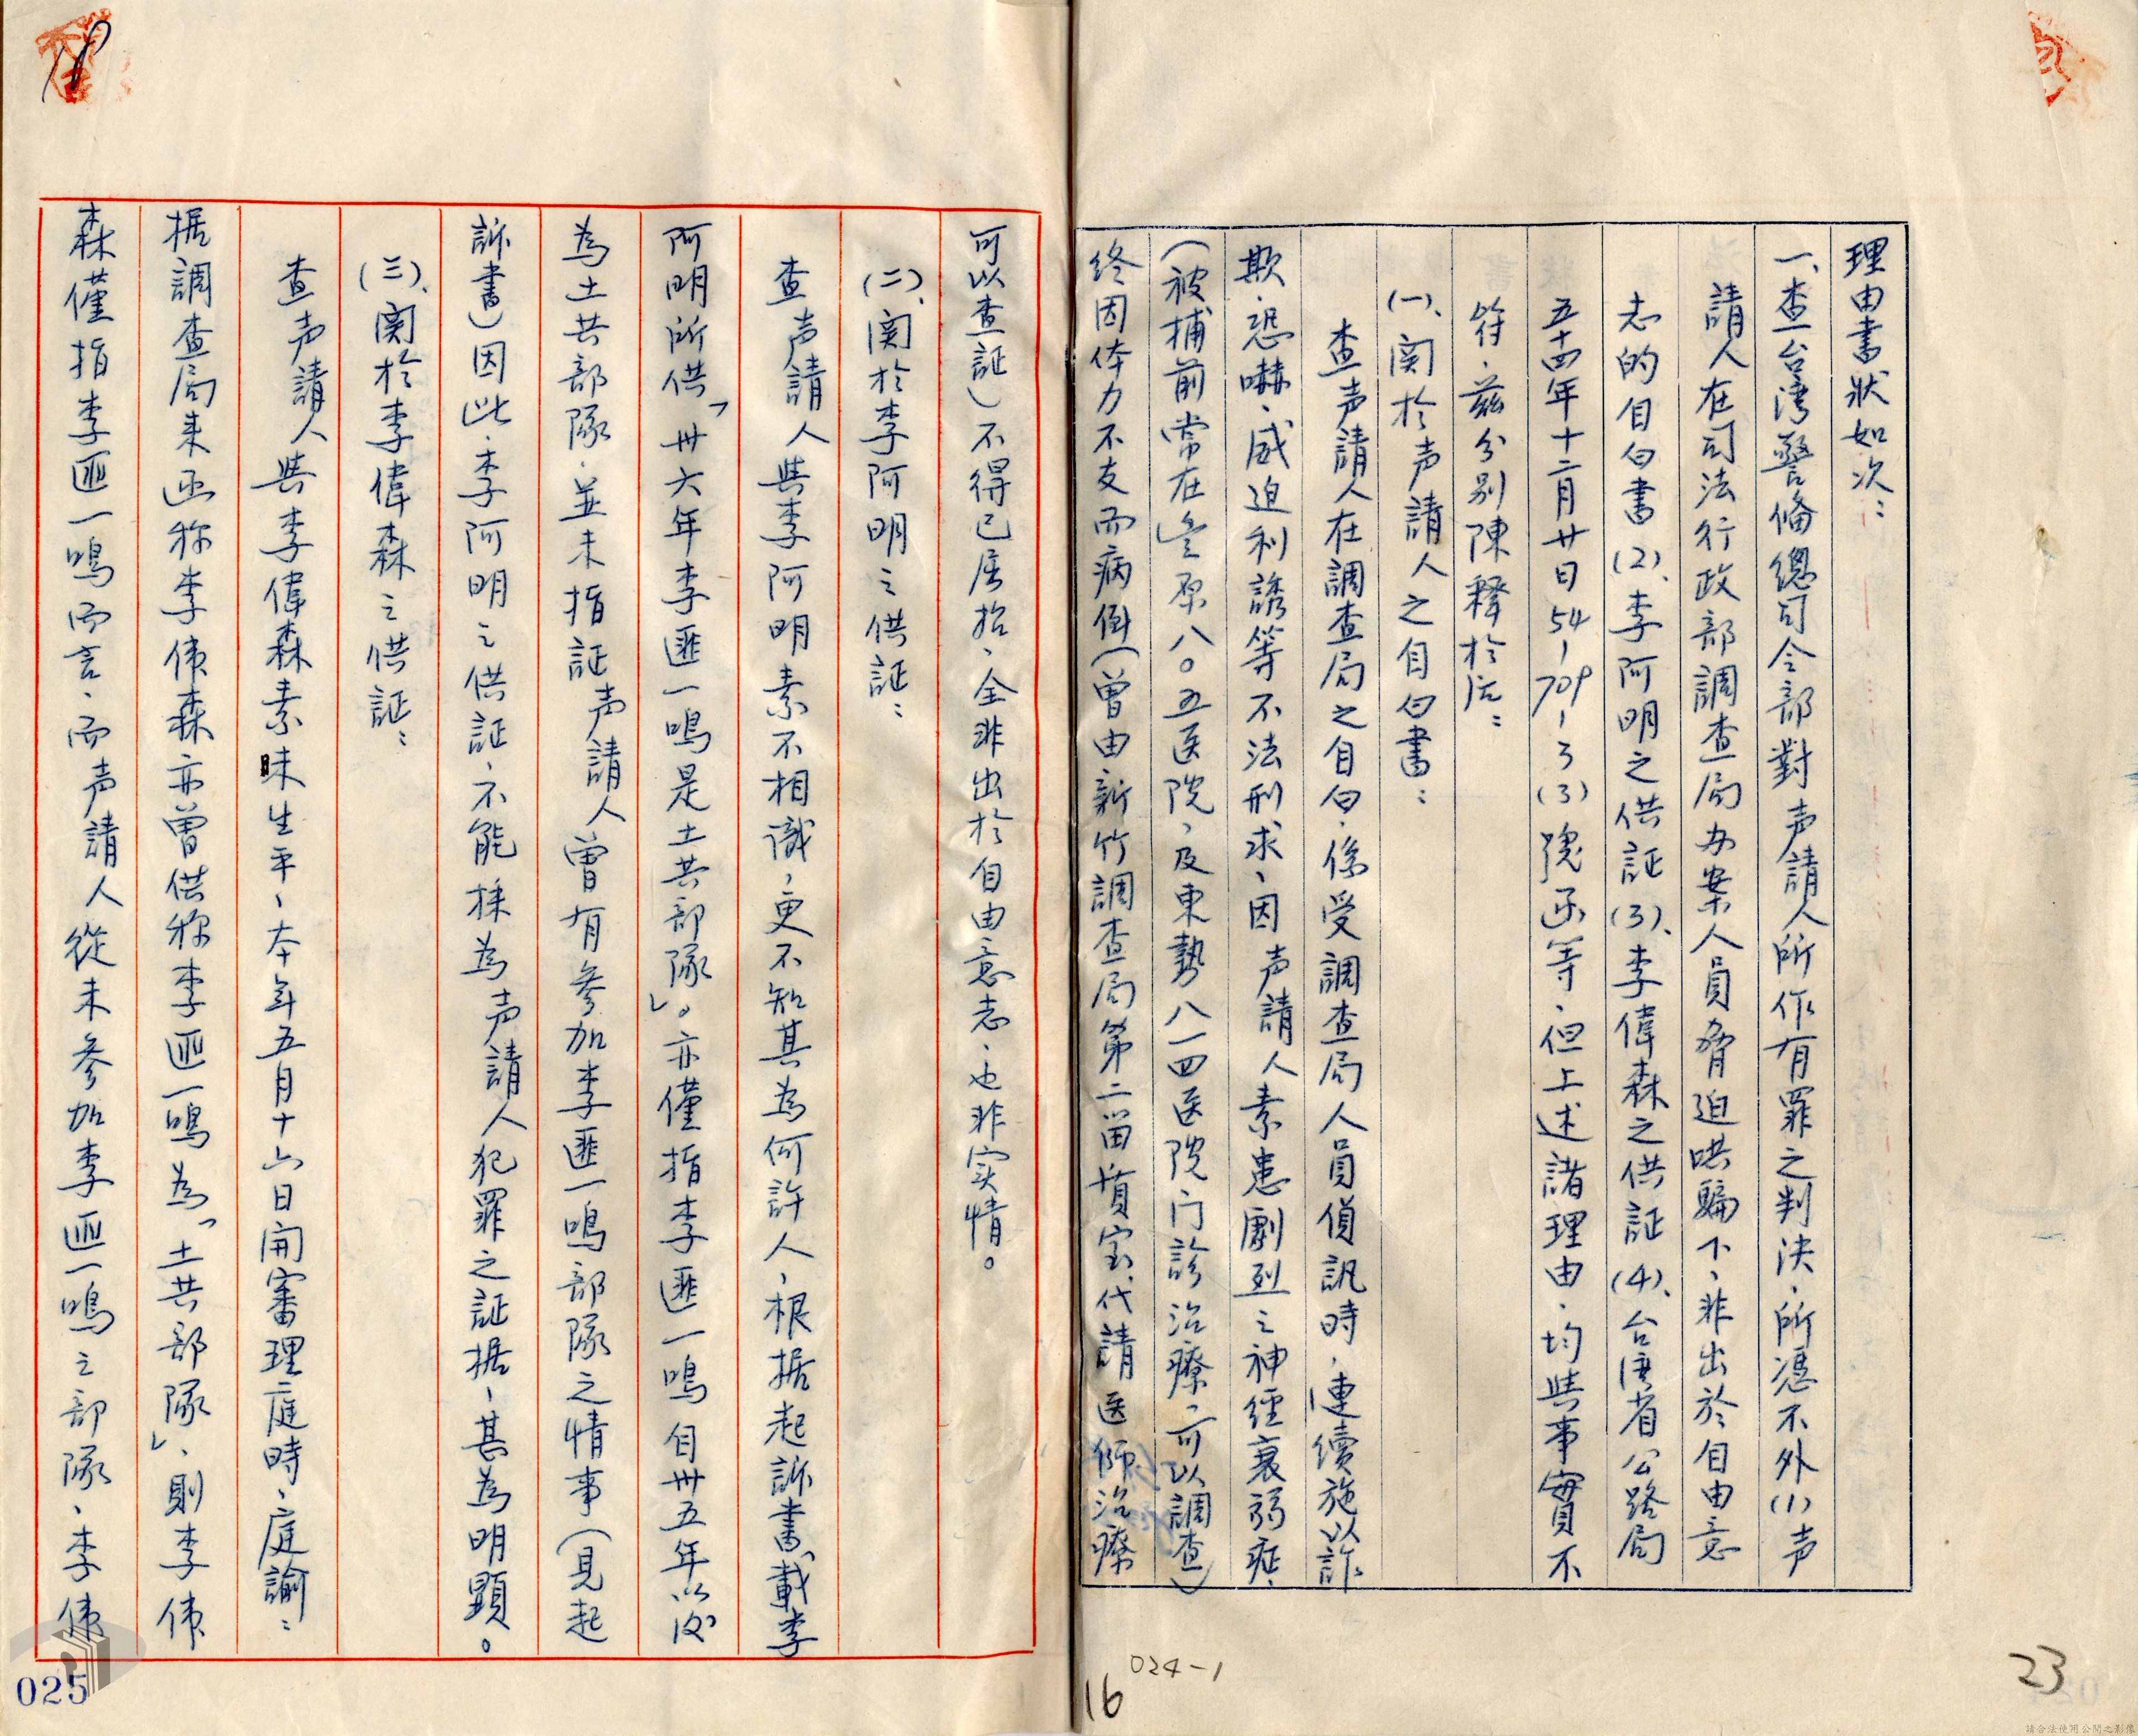 理由書狀如次：
一、查台湾警俻總司令部對声請人所作有罪之判決、所憑不外(1)声
請人在司法行政部調查局办案人員脅迫哄騙下、非出於自由意
志的自白書(2)、李阿明之供証(3)、李偉森之供証(4)、台湾省公路局
五十四年十二月廿日54-709-3(3)號函等、但上述諸理由、均與事實不
符、兹分別陳釋於后：
(一)、関於声請人之自白書：
查声請人在調查局之自白、係受調查局人員偵訊時，連續施以詐
欺、恐嚇、威迫利誘等不法刑求、因声請人素患劇烈之神經衰弱症、
(被捕前常在豊原八〇五医院、及東勢八一四医院门診治療、可以調查)
終因体力不支而病倒(曾由新竹調查局第二留質室代請医師治療
可以查証)不得已屈招、全非出於自由意志、也非实情。
(二)、関於李阿明之供証：
查声請人與李阿明素不相識，更不知其為何許人、根据起訴書載李
阿明所供「卅六年李匪一鳴是土共部隊」。亦僅指李匪一鳴自卅五年以後
為土共部隊、並未指証声請人曾有參加李匪一鳴部隊之情事(見起
訴書)因此、李阿明之供証、不能採為声請人犯罪之証据、甚為明顯。
(三)、関於李偉森之供証：
查声請人與李偉森素昧生平、本年五月十六日開審理庭時、庭諭：
据調查局来函称李偉森亦曾供称李匪一鳴為「土共部隊」、則李偉
森僅指李匪一鳴而言、而声請人從未參加李匪一鳴之部隊、李偉
025
024-1
16
23
請合法使用公開之影像